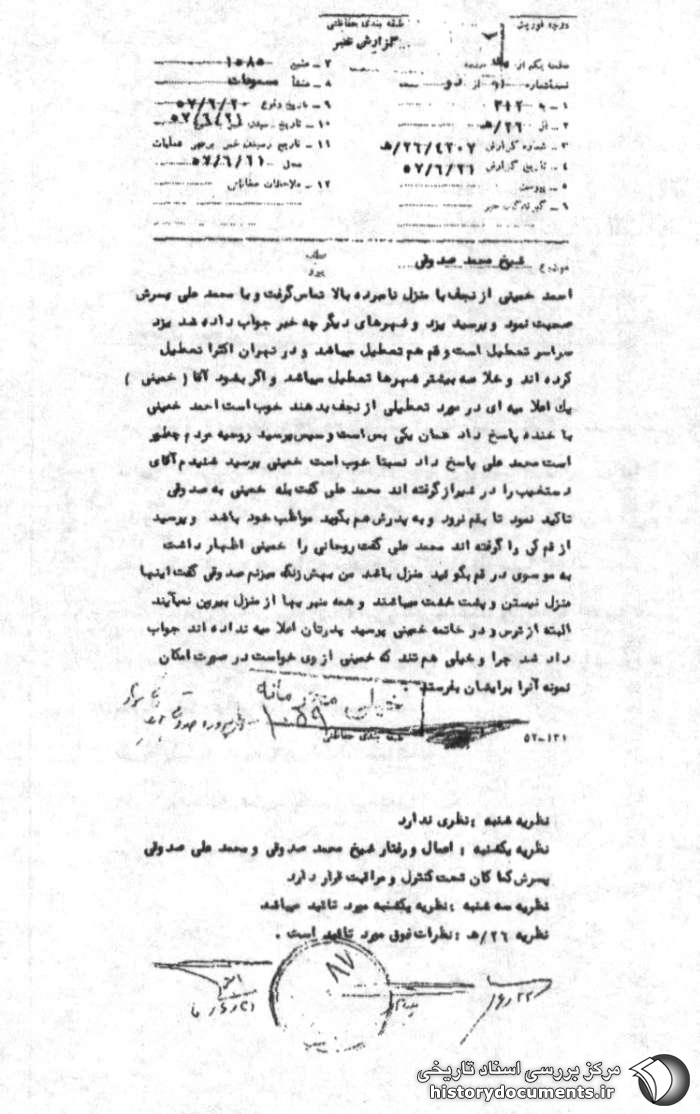 درجه فوریت
طبقه بندی حفاظتی
گزارش خبر
صفحه یکم از صفحه
نسخه شماره از دو نسخه
۱ ـ به ۳۱۲
۲ ـ از ۲۶/هـ
۳ ـ شماره گزارش ۲۶/۴۲۰۷/هـ
۴ ـ تاریخ گزارش ۵۷/۶/۲۱
۵ ـ پیوست
۶ ـ گیرندگان خبر
۷ ـ منبع ۱۰۸۵
۸ ـ منشأ مسموعات
۹ ـ تاریخ وقوع ۵۷/۶/۲۰
۱۰ ـ تاریخ رسیدن خبر ۵۷/۶/۲۱
۱۱ ـ تاریخ رسیدن خبر برهبر عملیات
محل ۵۷/۶/۲۱
۱۲ ـ ملاحظات حفاظتی
موضوع شیخ محمد صدوقی
عطف
پیرو
احمد خمینی از نجف با منزل نامبرده بالا تماس گرفت و با محمد علی پسرش
صحبت نمود و پرسید یزد و شهرهای دیگر چه خبر جواب داده شد یزد
سراسر تعطیل است و قم هم تعطیل میباشد و در تهران اکثرا تعطیل
کرده اند و خلاصه بیشتر شهرها تعطیل میباشد و اگر بشود آقا ( خمینی )
یک اعلامیه ای در مورد تعطیلی از نجف بدهند خوب است احمد خمینی
با خنده پاسخ داد همان یکی بس است و سپس پرسید روحیه مردم چطور
است محمد علی پاسخ داد نسبتا خوب است خمینی پرسید شنیدم آقای
دستغیب را در شیراز گرفته اند محمد علی گفت بله خمینی به صدوقی
تاکید نمود تا بقم نرود و به پدرش هم بگوید مواظب خود باشد و پرسید
از قم کی را گرفته اند محمد علی گفت روحانی را خمینی اظهار داشت
به موسوی در قم بگوئید منزل باشد من بهش زنگ میزنم صدوقی گفت اینها
منزل نیستن و پشت هفت میباشند و همه منبریها از منزل بیرون نمیآیند
البته از ترس و در خاتمه خمینی پرسید پدرتان اعلامیه نداده اند جواب
داد شد چرا و خیلی هم تند که خمینی از وی خواست در صورت امکان
نمونه آنرا برایشان بفرستد
خیلی محرمانه
۱۰۵۹
طبقه بندی حفاظتی
۵۲-۱۳۱
نظریه شنبه : نظری ندارد
نظریه یکشنبه : اعمال و رفتار شیخ محمد صدوقی و محمد علی صدوقی
پسرش کماکان تحت کنترل و مراقبت قرار دارد
نظریه سه شنبه : نظریه یکشنبه مورد تائید میباشد
نظریه ۲۶/هـ : نظرات فوق مورد تائید است .
۸۷
مرکز بررسی اسناد تاریخی
historydocuments.ir